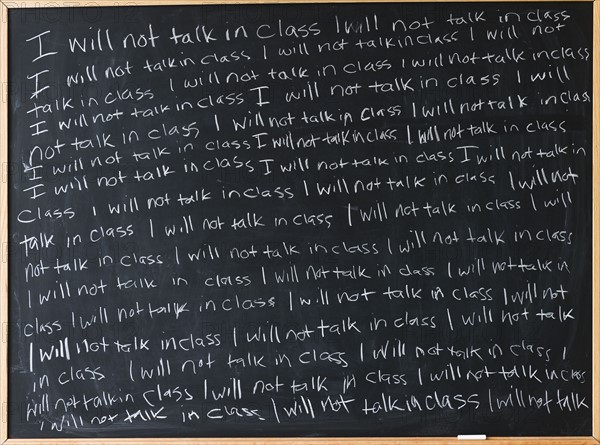 I will not talk in class I will not talk in class
I will not talk in class I will not talk in class I will not
talk in class I will not talk in class I will not talk in class
I will not talk in class I will not talk in class I will
not talk in class I will not talk in class I will not talk in class
I will not talk in class I will not talk in class I will not talk in class
I will not talk in class I will not talk in class I will not talk in
class I will not talk in class I will not talk in class I will not
talk in class I will not talk in class I will not talk in class I will
not talk in class I will not talk in class I will not talk in class
I will not talk in class I will not talk in class I will not talk in
class I will not talk in class I will not talk in class I will not
I will not talk in class I will not talk in class I will not talk
in class I will not talk in class I will not talk in class I
will not talk in class I will not talk in class I will not talk in class
I will not talk in class I will not talk in class I will not talk